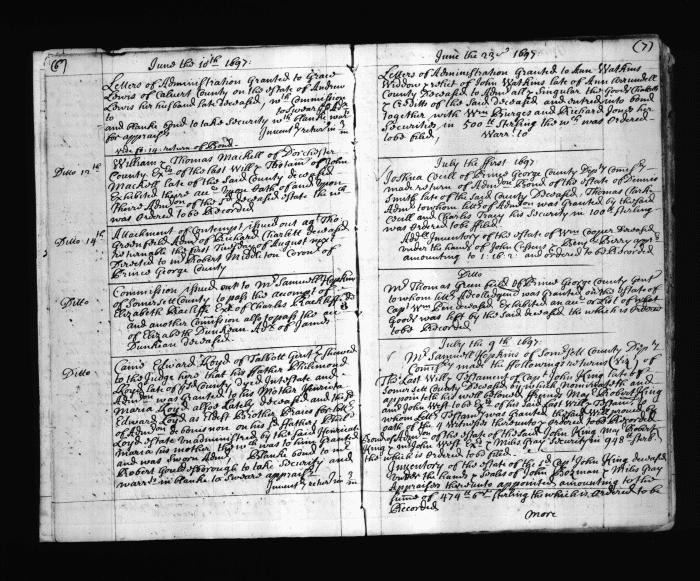 (6)
June the 10th 1697.
Letters of Administration Granted to Grace
Lewis of Calvert County on the estate of Andrew
Lewis her husband late deceased, wth Commission
to to sweare
and blanke bond to take Security wth blanke warrt
for appraisrs Inventy return in 3 m
Ditto 12th
William & Thomas Mackell of Dorchester
County Exrs of the last Will & Testamt of John
Mackell late of the said County deceased
Exhibited there acct upon oath of and upon
there Admcon of the sd deceased Estate the wch
was Ordered to be Recorded
Ditto 14th
Attachment of Contempt issued out agt Tho
Greenfeild Admr of Richard Charlett deceased
returnable the first Tuesday of August next
Directed to mr Robert Middleton Coronr of
Prince George County
Ditto
Commission issued out to Mr Samuell Hopkins
of Somersett County to pass the accompt of
Elizabeth Ratcliffe Exx of Charles Ratcliffe
and another Comission allso to pass the acct
of Elizabeth Dunkean Adx of James
Dunkean deceased.
Ditto
Came Edward Loyd of Talbott Gent & shewed
to the Judge here that his ffather Philemond
Loyd late of sd County Dyed Intestate and
Admcon was Granted to his Mother Henrieta
Maria Loyd allso Lately deceased and the sd
Edward Loyd as Eldest Brother Praies for
of Admcon de bonis non on his sd ffather Philemon
Loyd estate Unadministred by the said Henrieta
Maria his mother the wch was to him Granted
and was Sworn Admr Blanke bond to mr
Robert Gouldesborough to take Security and
warrt in blanke to Sweare appraisrs
Inventy return in 3 m
(7)
June the 23d 1697
Letters of Administration Granted to Ann Watkins
Widdow relict of John Watkins late of Ann Arundell
County deceased to Admr all & Singular the Goods Chattells
& Creditts of the Said deceased and entred into bond
together with Wm Burges and Richard Jones her
Securities in 500lb Sterling the wch was Ordered
to be filed, Warrt to
July the first 1697
Joshua Cecill of Prince George County Depty Comisry
made return of Admcon Bond of the estate of Dennis
Smith late of the said County deceased, Thomas Clark
Admr to whom lettrs of Admcon was Granted by the said
Cecill and Charles Tracy his Security in 100lb sterling
was Ordered to be ffiled
Addl Inventory of the Estate of Wm Cooper deceased
under the hands of John & Benj Berry apprs
amounting to 1:16:2: and ordered to be Recorded
Ditto
Mr Thomas Green feild of Prince George County Gent
to whom lettrs Ad colligend was Granted on the Estate of
Capt Wm deceased Exhibited an acct or list of what
Goods was left by the said deceased the which is ordered
to be Recorded
July the 9th 1697.
Mr Samuell Hopkins of Somersett County Depty
Comisry made the following returns (Viz)
The Last Will & Testament of Capt John King late of
Somersett County deceased in which he nominateth and
appointeth his well beloved ffriends May Robert King
and John West to be Exrs of his Last Will & Testamt to
whom Lettrs Testamtry was Granted the said Will proved by
oath of the 4 Witnesses thereunto & ordered to be Recorded
Bond of Admcon of the Estate of the said John King May Robert
King & mr John West & Miles Gray Security in 948lb sterl
the which is ordered to be filed
Inventory of the Estate of the sd Capt John King deceased
Under the hands & Seales of John Bozman & Miles Gray
Appraisrs thereunto appointed amounting to the
Summe of 474lb sterling the which is Ordered to be
Recorded
More